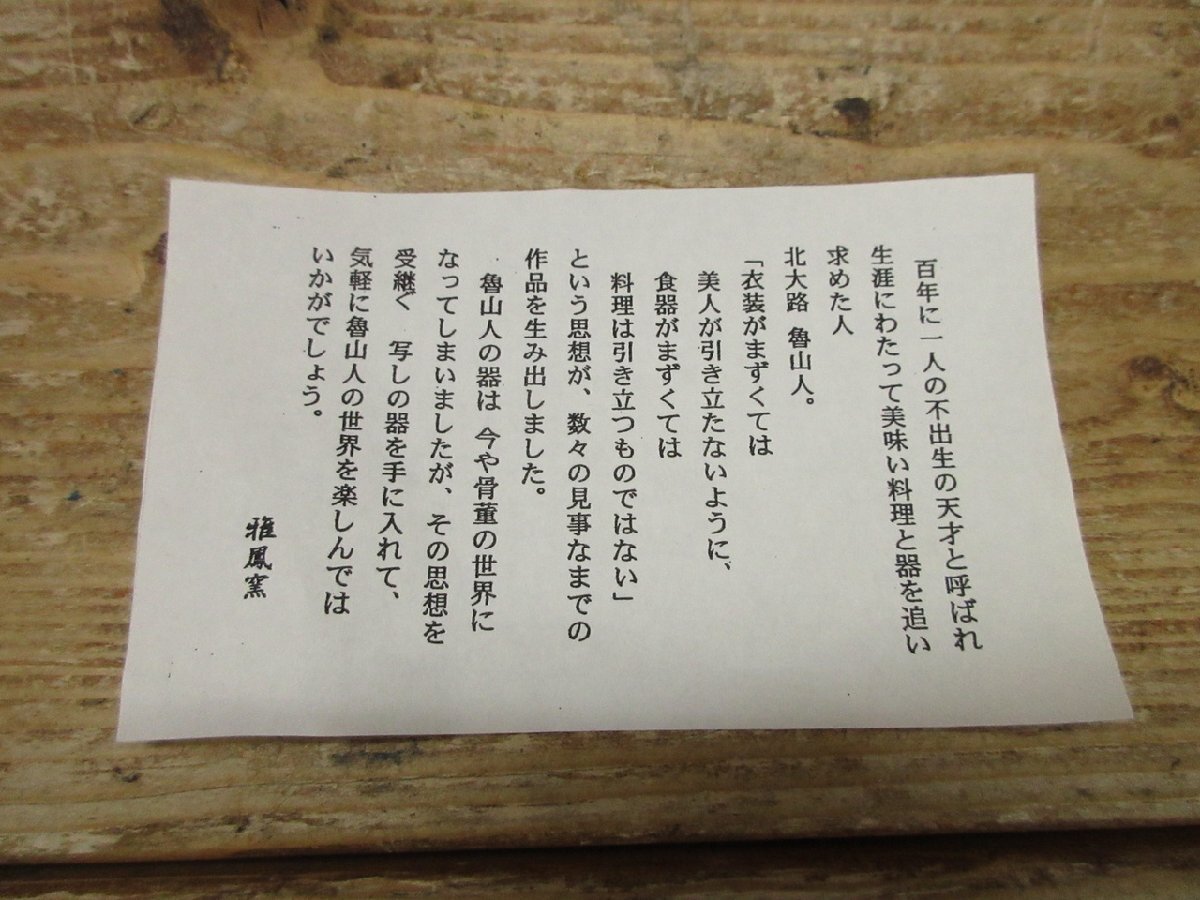 百年に一人の不出生の天才と呼ばれ
生涯にわたって美味い料理と器を追い
求めた人
北大路 魯山人。
「衣装がまずくては
美人が引き立たないように、
食器がまずくては
料理は引き立つものではない」
という思想が、数々の見事なまでの
作品を生み出しました。
魯山人の器は 今や骨董の世界に
なってしまいましたが、その思想を
受継ぐ 写しの器を手に入れて、
気軽に魯山人の世界を楽しんでは
いかがでしょう。
雅鳳窯